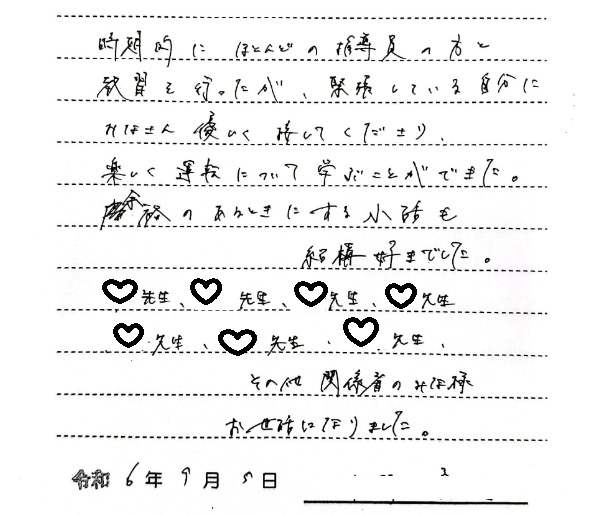 時期的にほとんどの指導員の方と
教習を行ったが、緊張している自分に
みなさん優しく接してくださり、
楽しく運転について学ぶことができました。
余裕のあるときにする小話も
結構好きでした。
先生、先生、先生、先生
先生、先生、先生、
その他関係者のみな様
お世話になりました。
令和6年9月5日